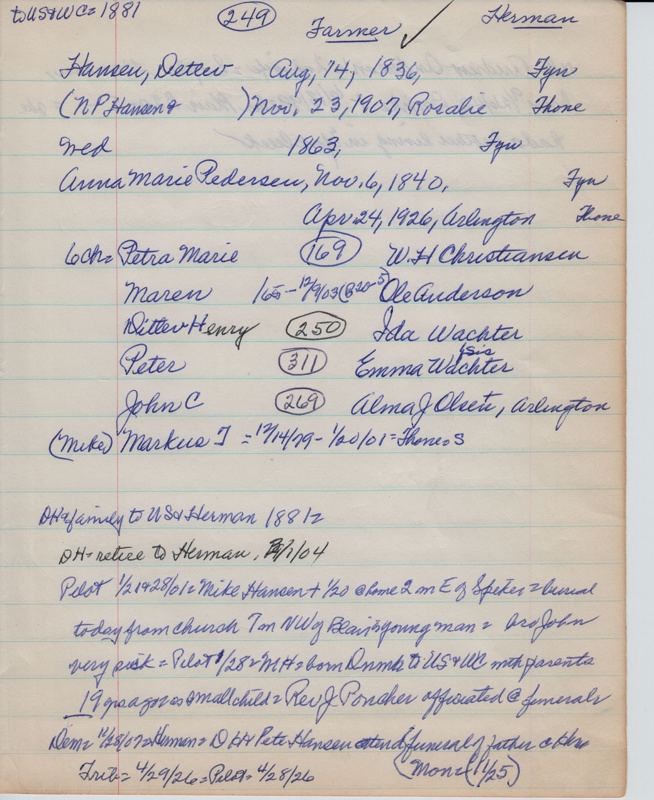 to US & WC = 1881 249 Farmer ✓ Herman
Hansen, Detlev Aug, 14, 1836, Fyn
(NP Hansen & ) Nov. 23, 1907, Rosalie Thone
Wed 1863, Fyn
Anna Marie Pedersen, Nov. 6, 1840, Fyn
Apr. 24, 1926, Arlington Thone
6 ch = Petra Marie 169 W. H Christiansen
Maren 165 - 12/9/03 Ole Anderson
Ditlev Henry 250 Ida Wachter
Peter 311 Emma Wachter sis
John C 269 Alma J Olsen, Arlington
(Mike) Markus T = 12/14/79 - 1/20/01 = Thone = S
DH & family to US & Herman 1881 =
DH = retire to Herman, /1/04
Pilot 1/21 & 28/01 = Mike Hansen + 1/20 @ home 2 m E of Spiker = burial
today from church 7 m NW of Blair = young man = bro John
very sick = Pilot 1/28 = MH = born Dnmk to US & WC with parents
19 yrs ago as small child = Rev J. Poncher officiated @ funerals
Dem = 11/28/07 = Herman = DH & Pete Hansen attend funeral of father
Trib = 4/29/26 = Pilot = 4/28/26 (Mon = 11/25)